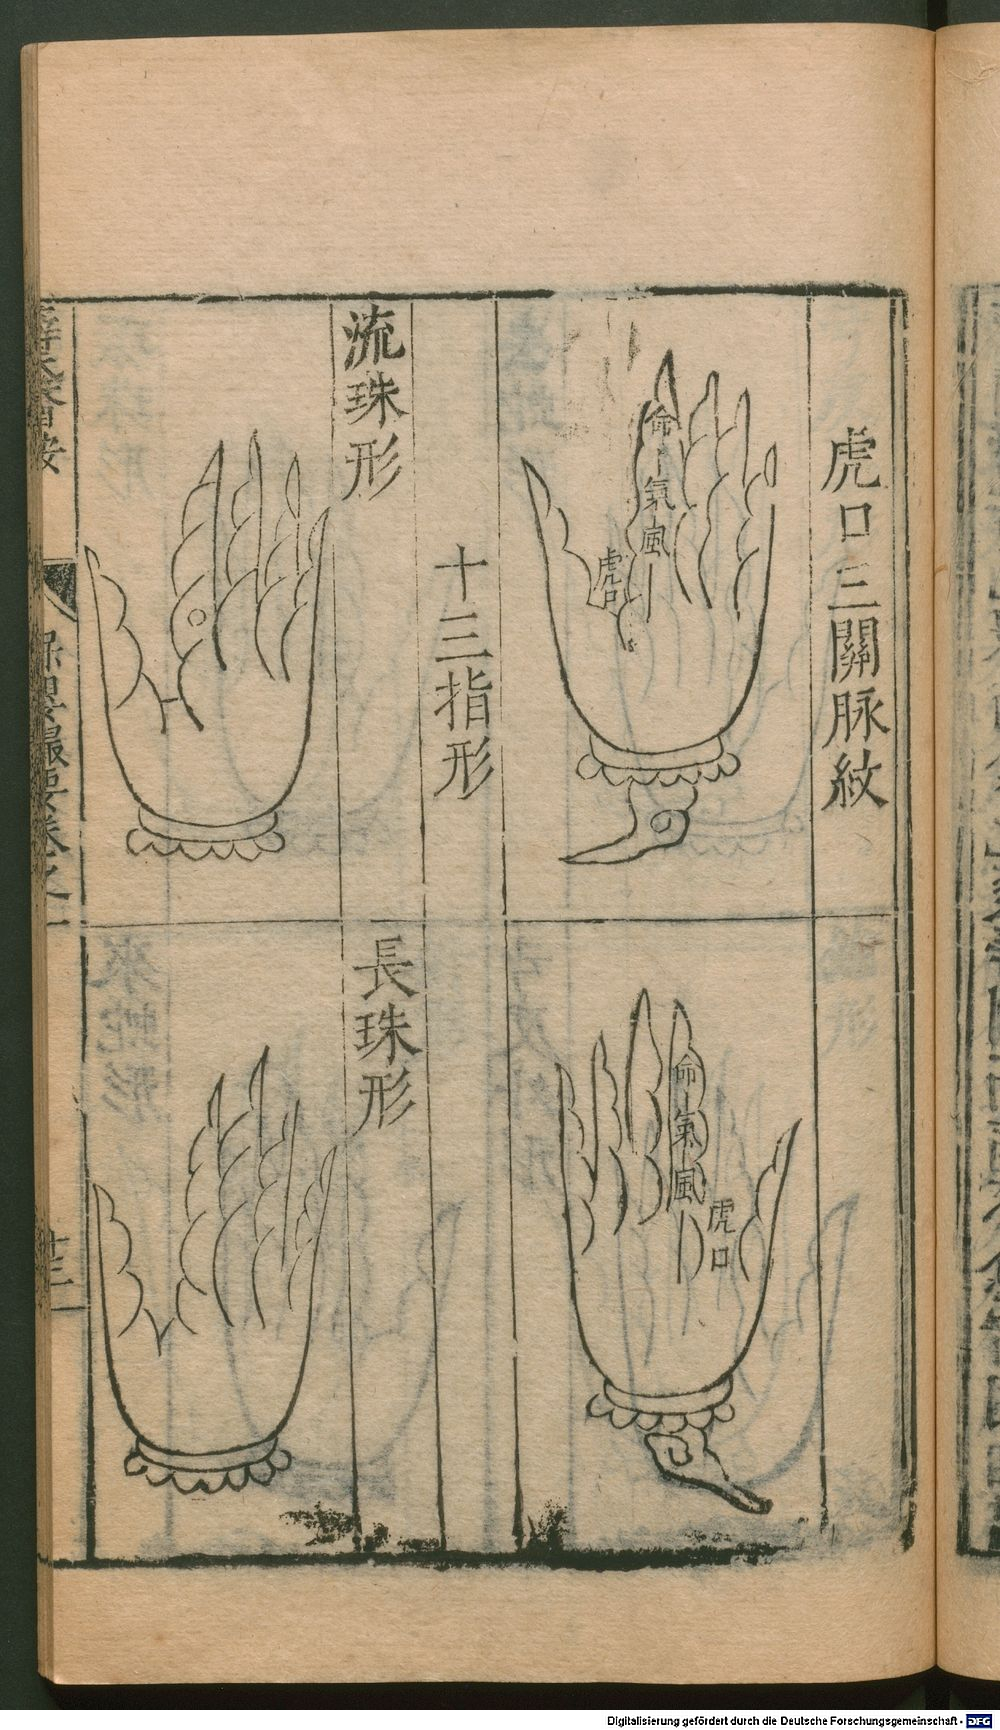 虎口三關脉紋
命氣風
虎口
命氣風
虎口
十三指形
流珠形
長珠形
保嬰撮要卷之一
Digitalisierung gefördert durch die Deutsche Forschungsgemeinschaft - DFG